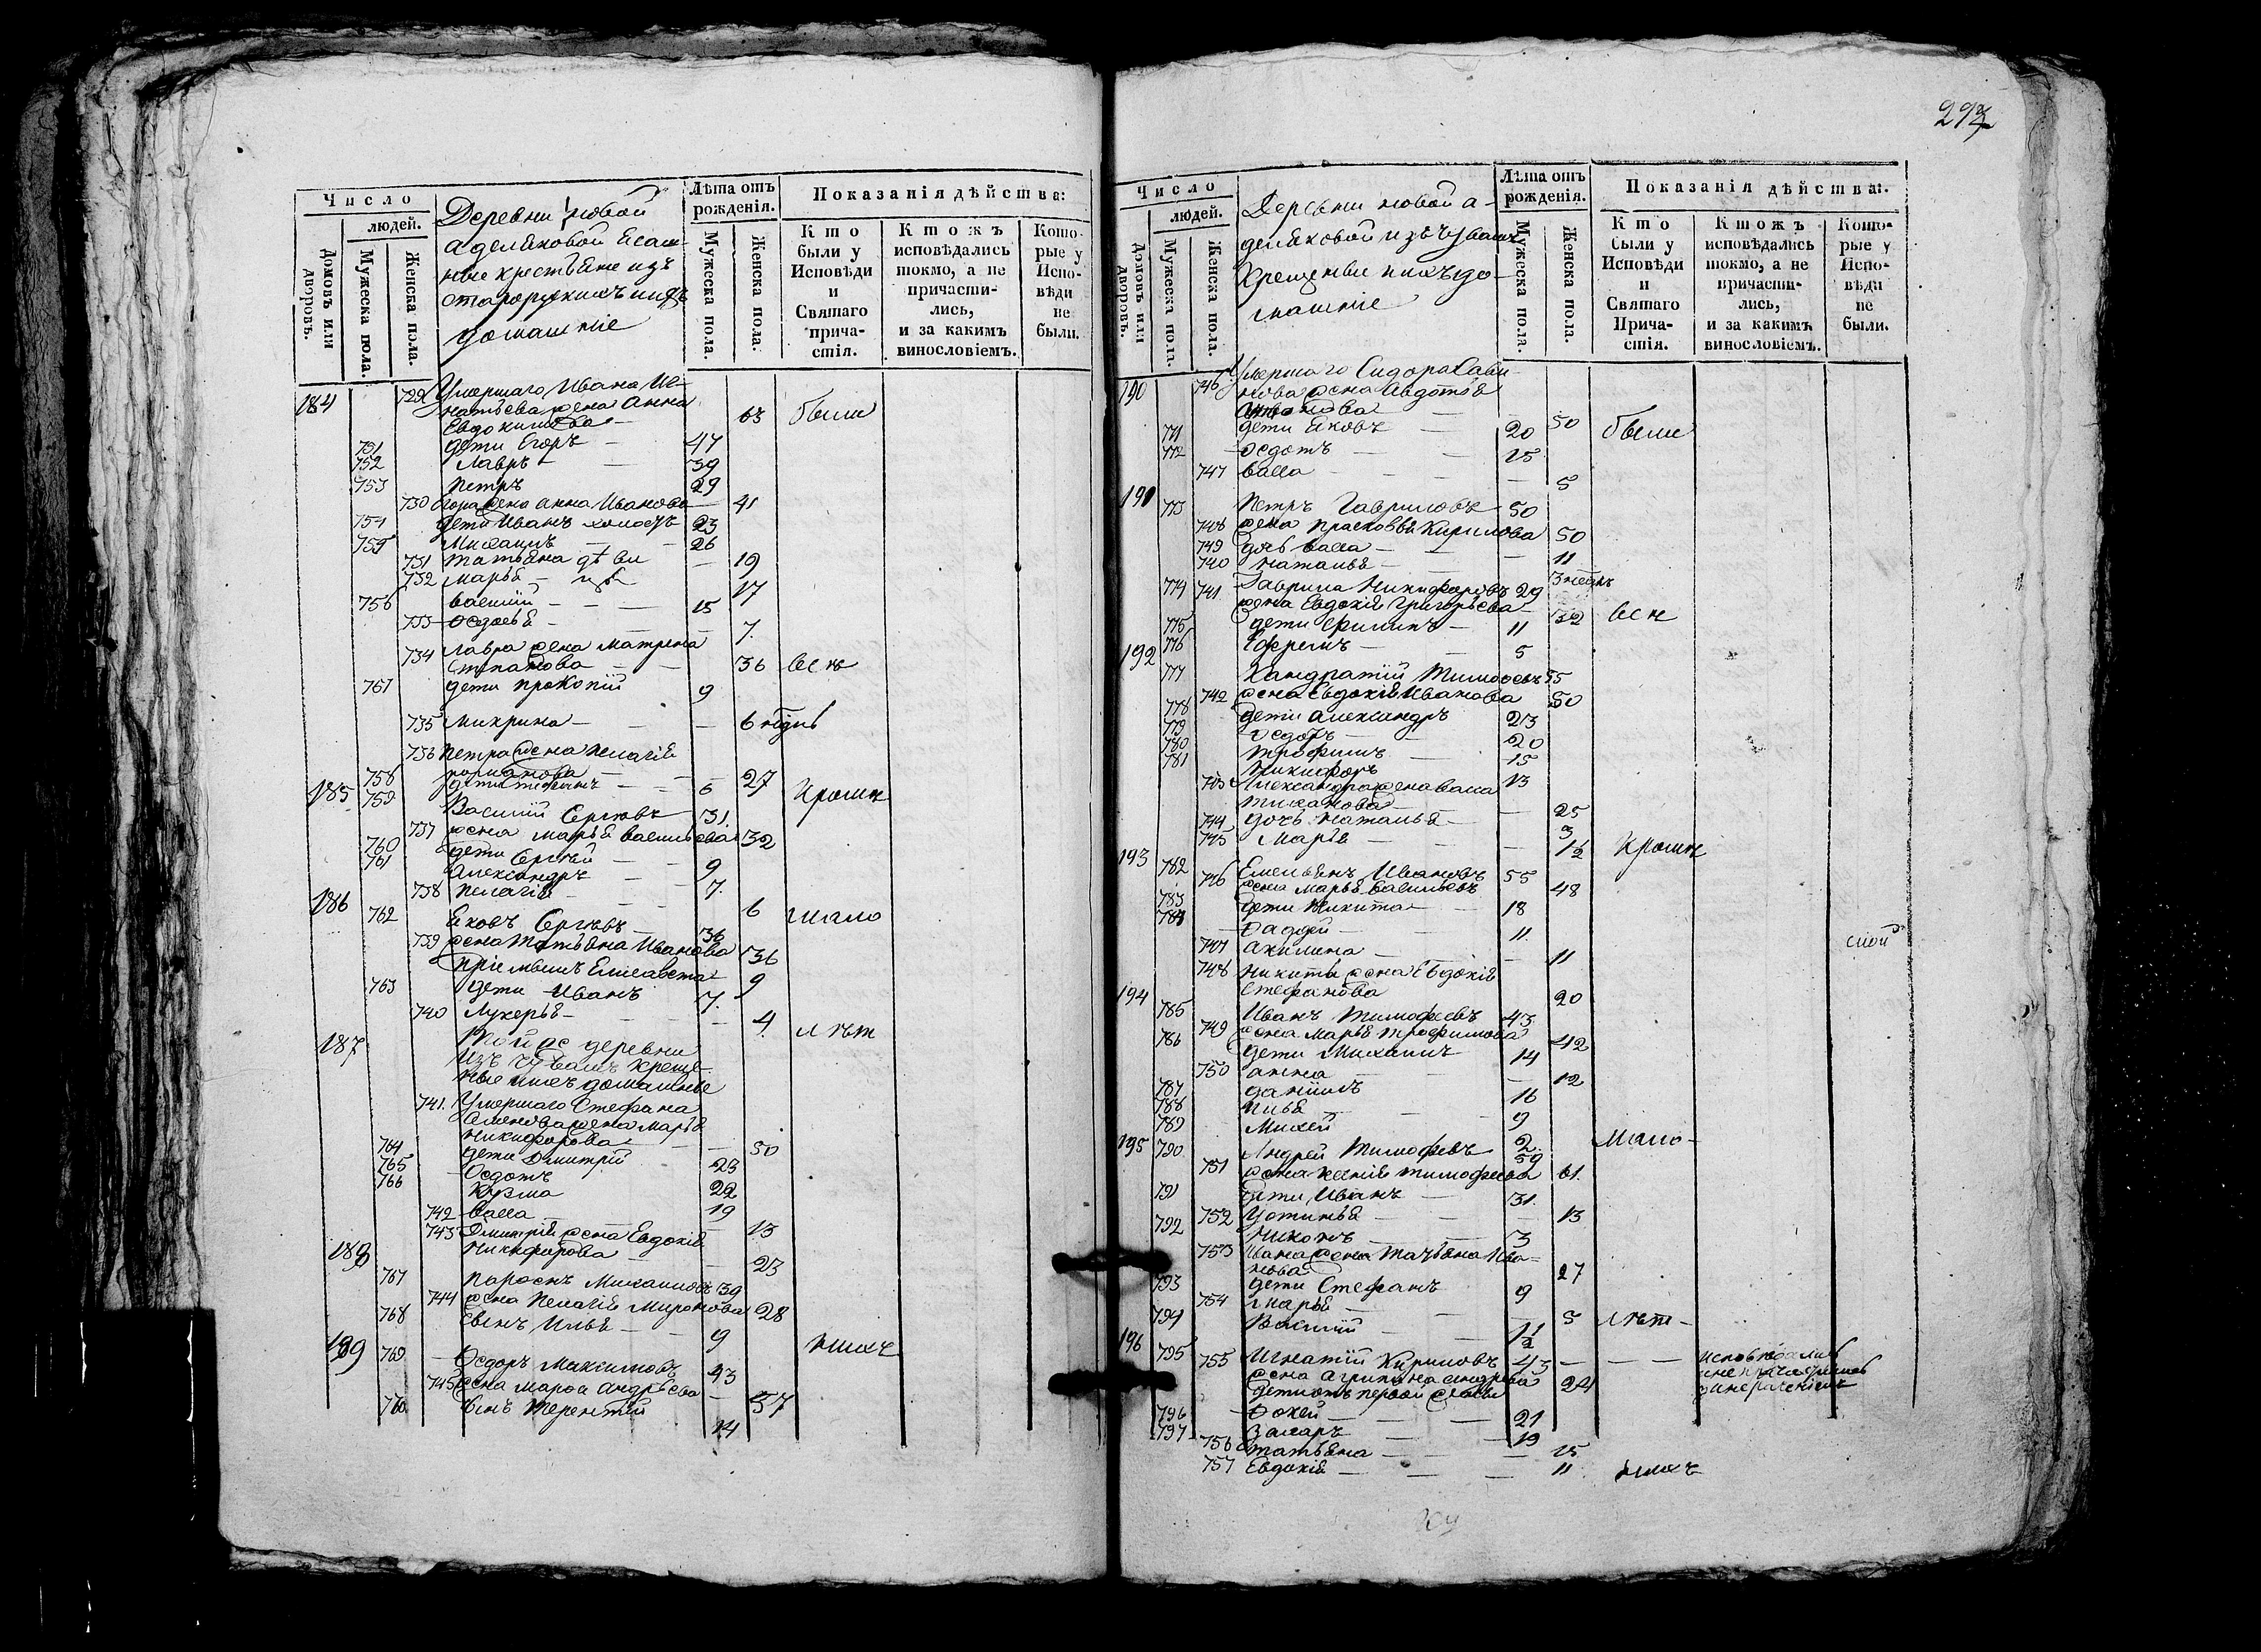 293
Число
людей.
Домовъ или дворовъ.
Мужеска пола.
Женска пола.
Деревни новой
аделяковой Ясаш-
ные крестьяне изъ
старорускихъ и ихъ
домашніе
Лѣта отъ рожденія.
Мужеска пола.
Женска пола.
Показанія дѣйства:
Кто были у Исповѣди и Святаго причастія.
Ктожъ исповѣдались токмо, а не причастились, и за какимъ винословіемъ.
Которые у Исповѣди не были.
184 729 Умершаго Ивана Иг-
натьева жена Анна
Евдокимова 63 были
751 дети Егоръ 47
752 Лавръ 39
753 Петръ 29
730 Егора жена Анна Иванова 41
754 дети Иванъ холостъ 23
755 Михаилъ 26
731 Татьяна 19
732 Марья 17
756 Василій 15
733 Федосья 7
734 Лавра жена Матрена
Степанова 36 всѣ
757 дети Прокопій 9
735 Макрина 6
736 Петра жена Пелагія
27
758 дети Стефанъ 6 кромѣ
185 759 Василій Сергѣевъ 31
737 жена Марья Васильева 32
760 дети Сергѣй 9
761 Александръ 7
738 Пелагія 6 мало
186 762 Яковъ Сергѣевъ 36
739 жена Татьяна Иванова 36
пріемышъ Елисавета 9
763 дети Иванъ 7
740 Лукерья 4 лѣт
187 Той же деревни
изъ чувашъ креще-
ные и ихъ домашніе
741 Умершаго Стефана
Семенова жена Марья
Никифорова 50
764 дети Дмитрій 23
765 Федотъ 22
766 Кузма 19
742 Васса 13
743 Дмитрія жена Евдокія
Никифорова 23
188 767 Михаиловъ 39
744 жена Пелагія Миронова 28
768 сынъ Илья 9 нихъ
189 769 Федоръ Максимовъ 43
745 жена Марфа Андрѣева 37
770 сынъ Терентій 14
Число
людей.
Домовъ или дворовъ.
Мужеска пола.
Женска пола.
Деревни новой а-
деляковой изъ чувашъ
Крещеные и ихъ до-
машніе
Лѣта отъ рожденія.
Мужеска пола.
Женска пола.
Показанія дѣйства:
Кто были у Исповѣди и Святаго Причастія.
Ктожъ исповѣдались токмо, а не причастились, и за какимъ винословіемъ.
Которые у Исповѣди не были.
190 746 Умершаго Сидора Сави-
нова жена Авдотья
50 были
771 дети Яковъ 20
772 Федотъ 15
747 Васса 5
191 773 Петръ Гавриловъ 50
748 жена Прасковья Кирилова 50
749 дочь Васса 11
740 Наталья 3
774 Гаврила Никифоровъ 29
741 жена Евдокія Григорьева 32 всѣ
775 дети Филипъ 11
776 Ефремъ 5
192 777 Кандратій Тимофеевъ 55
742 жена Евдокія Иванова 50
778 дети Александръ 23
779 Федоръ 20
780 Трофимъ 15
781 Никифоръ 13
743 Александра жена Васса
Тиханова 25
744 дочь Наталья 3
745 Марья 1½ кромѣ
193 782 Емельянъ Ивановъ 55
746 жена Марья Васильева 48
783 дети Никита 18
784 Фаддей 11
747 Акилина 11
748 Никиты жена Евдокія
Стефанова 20
194 785 Иванъ Тимофѣевъ 43
749 жена Марья Трофимова 42
786 дети Михаилъ 14
750 Анна 12
787 Даніилъ 16
788 Илья 9
789 Михей 2 мало
195 790 Андрей Тимофѣевъ 59
751 жена Ксенія Тимофеева 61
791 дети Иванъ 31
752 Устинья 13
792 Никонъ 3
753 Ивана жена Татьяна Ива-
нова 27
793 дети Стефанъ 9
754 Марья 5 лѣт
794 Василій 1½
196 795 Игнатій Кириловъ 43 исповѣдались
755 жена Агрипина Андрѣева 24
дети отъ первой жены
796 Фокей 21
797 Захаръ 19
756 Татьяна 15
757 Евдокія 11 нихъ